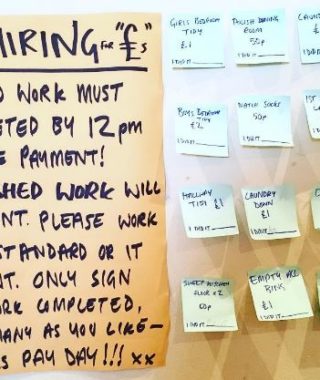 HIRING FOR "£"s
WORK MUST
ETED BY 12pm
PAYMENT!
SHED WORK WILL
NT. PLEASE WORK
STANDARD OR IT
NT. ONLY SIGN
RK COMPLETED,
MANY AS YOU LIKE-
S PAY DAY!!! xx
GIRLS BEDROOM
TIDY
£1
I DID IT
POLISH DINING
ROOM
50p
I DID IT
LAUN
£
I DID I
BOYS BEDROOM
TIDY
£2
I DID IT
MATCH SOCKS
50p
I DID IT
1ST
I DID
HALLWAY
TIDY £1
I DID IT
LAUNDRY
DOWN
£1
I DID IT
I DI
SWEEP KITCHEN
FLOOR x2
50p
I DID IT
EMPTY ALL
BINS
£1
I DID IT
I DID